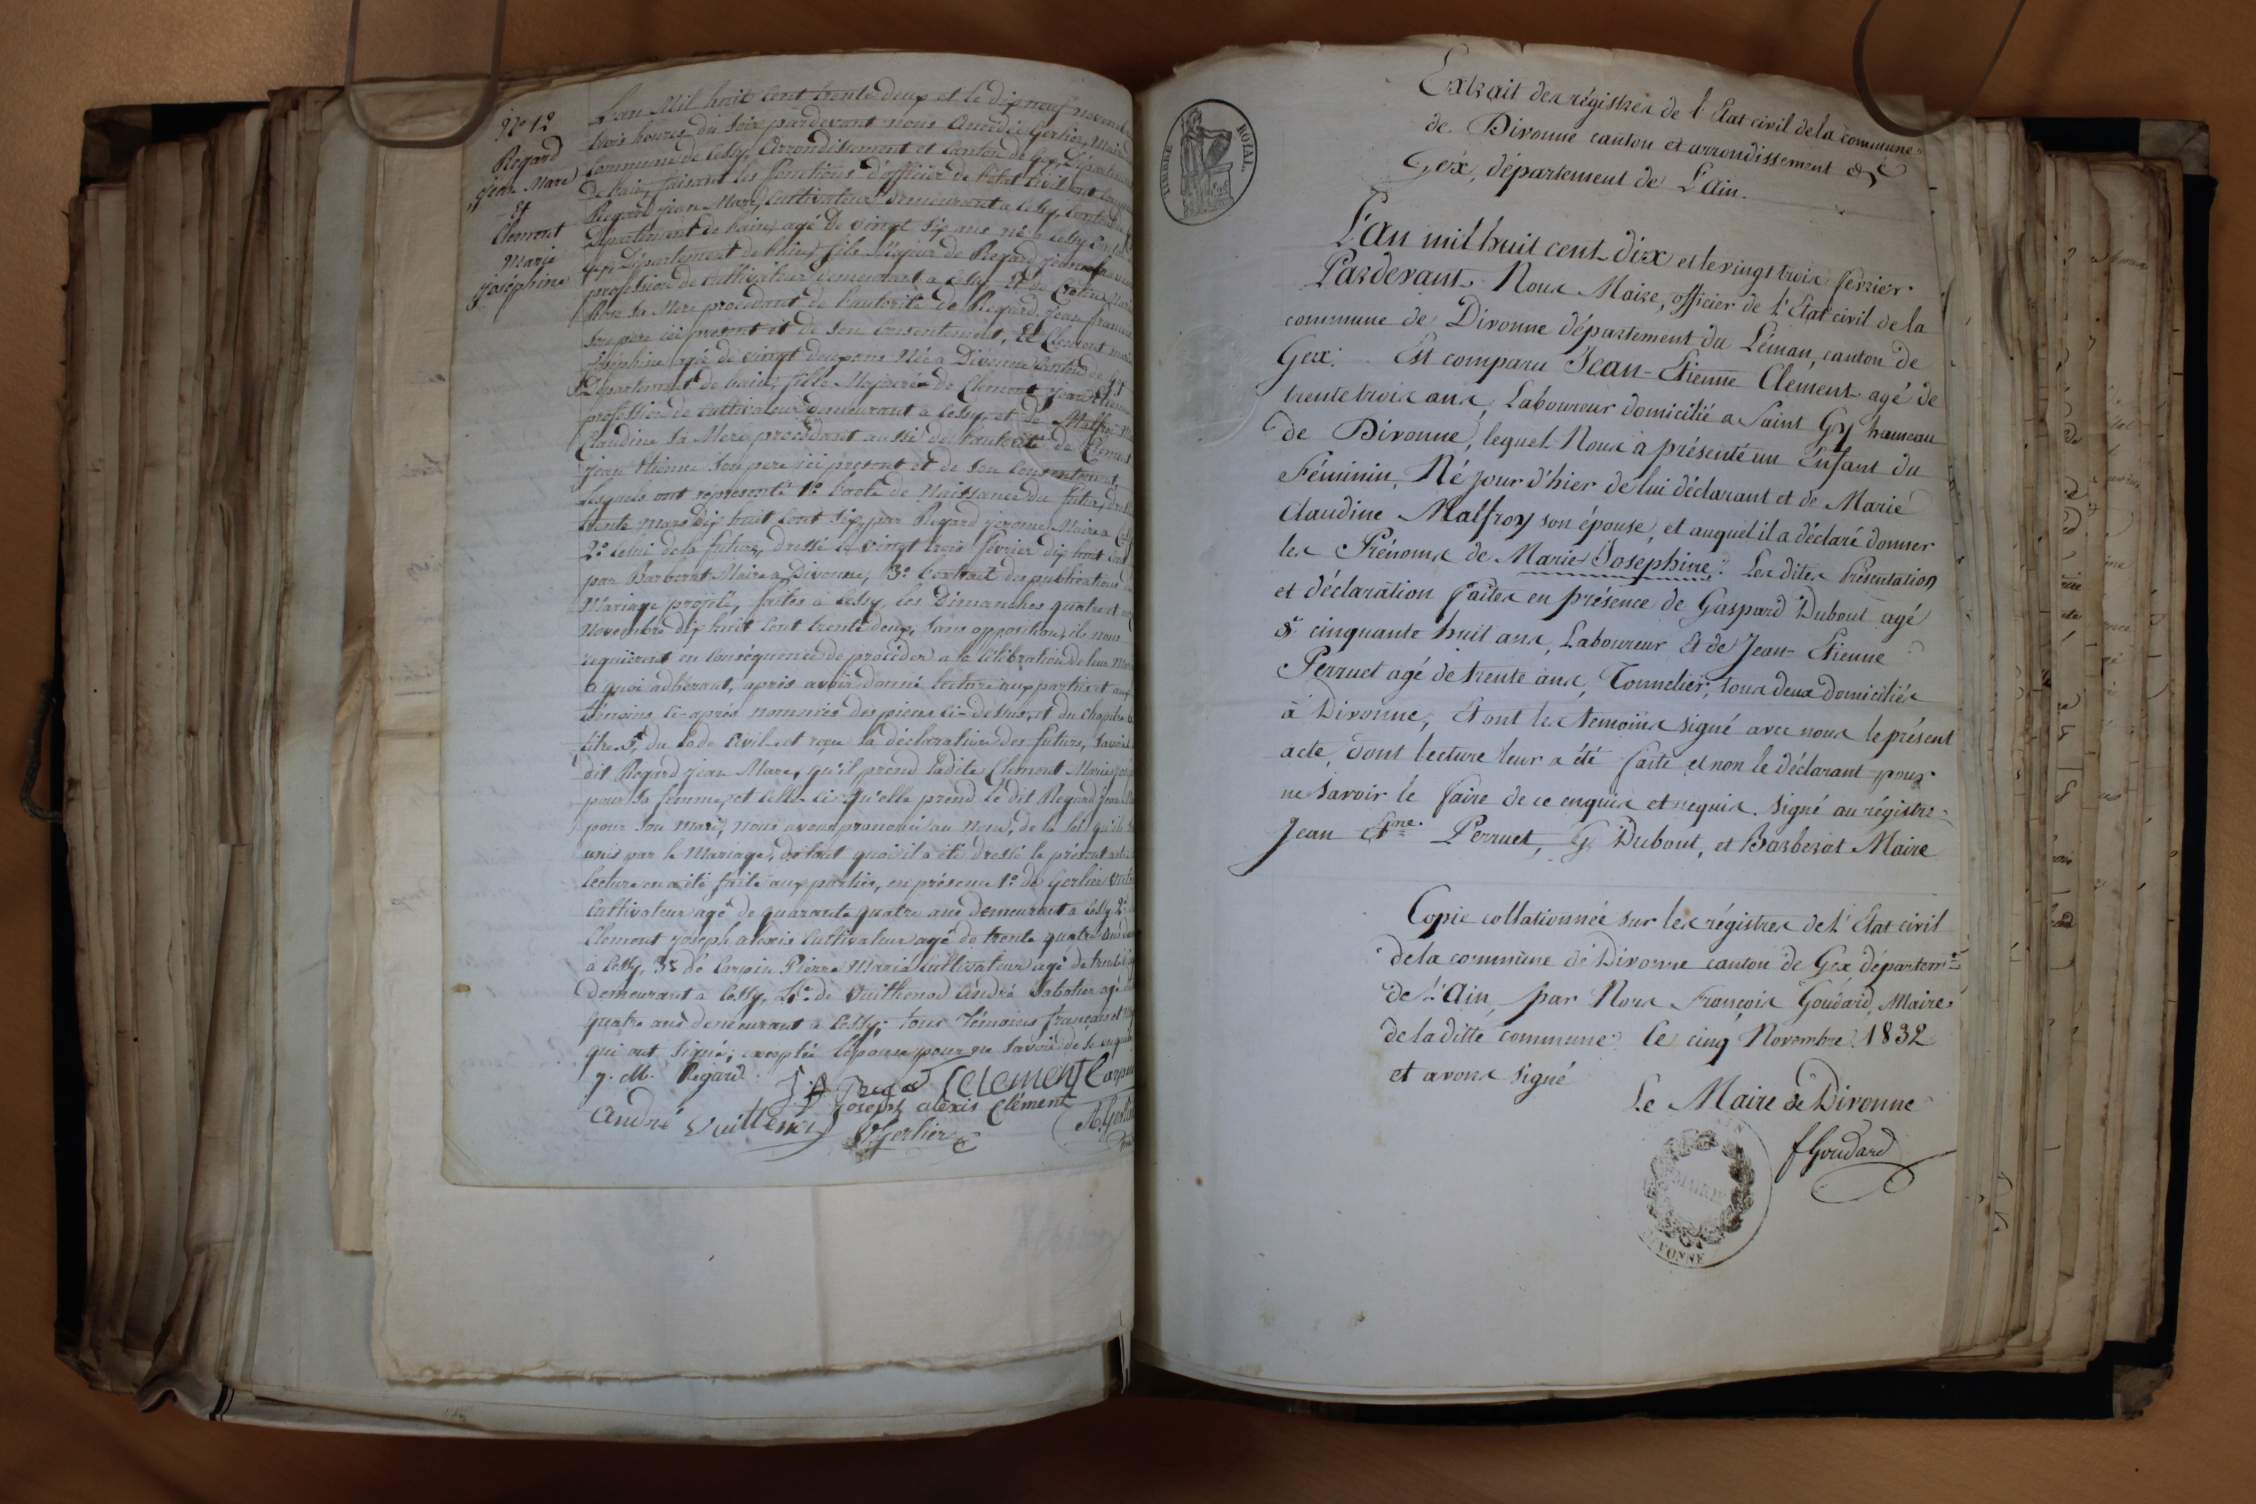 N.o 12
Regard
jean Marc
Et
Clement
Marie
joséphine
L'an Mil huit Cent trente deux et le dix neuf novemb
trois heures du Soir pardevant nous Amédée Gerlier, Maire
Commune de Cessy, Arrondissement et Canton de Gex, Département
De l'ain, faisant les fonctions d'officier de l'état Civil, ont comp
Regard jean Marc, Cultivateur demeurant a Cessy, Canton de
Département de l'ain, agé de vingt Six ans né a Cessy Canton
Gex, Département de l'ain, fils Majeur de Regard jean francois
profession de Cultivateur demeurant a Cessy Et de
sa Mere procédant de l'autorité de Regard jean francois
Son père ici présent et de Son Consentement, Et Clement marie
joséphine agée de vingt deux ans Née a Divonne Canton de Gex
Département de l'ain, fille Majeure de Clement jean Etienne
profession de Cultivateur demeurant a Cessy, et de Malfroy
Claudine Sa Mere procédant aussi de l'autorité de Clement
jean Etienne Son pere ici present et de Son Consentement
lesquels ont représenté 1.o l'acte de Naissance du futur, dressé
trente Mars dix huit Cent Six, par Regard jerome Maire a Cessy
2.o Celui de la future, dressé le vingt trois février dix huit Cent
par Barberat Maire a Divonne, 3.o l'extrait des publications
Mariage projeté, faites a Cessy, les Dimanches quatre et
Novembre dix huit Cent trente deux, Sans opposition, ils nous
requierent en Conséquence de procéder a la Célébration de leur Mar
a quoi adhérant, après avoir donné lecture aux parties et aux
témoins Ci-après nommés des pieces Ci-dessus, et du chapitre
titre 5.e du Code Civil et reçu la déclaration des futurs, Savoir
dit Regard jean Marc, qu'il prend ladite Clement Marie jos
pour Sa femme, et Celle Ci qu'elle prend le dit Regard jean
pour Son Mari, nous avons prononcé au Nom de la loi qu'ils
unis par le Mariage, de tout quoi il a été dressé le présent acte
lecture en a été faite aux parties, en présence 1.o de Gerlier
Cultivateur agé de quarante quatre ans demeurant a Cessy 2.o
Clement joseph alexis Cultivateur agé de trente quatre ans
a Cessy, 3.o de Carpin Pierre Maria Cultivateur agé de trente
demeurant a Cessy, 4.o de Vuillenod André Sabotier agé
quatre ans demeurant a Cessy; tous Témoins français et
qui ont Signé; excepté l'épouse pour ne Savoir de Ce enquise
J. M. Regard
J. f. Regard J Clement Carpin
Joseph alexis Clément
André Vuillenod V. Gerlier A. Gerlier
TIMBRE ROYAL
Extrait des régistres de l'Etat civil de la commune
de Divonne canton et arrondissement de
Gex, département de L'Ain.
L'an mil huit cent dix et le vingt trois février
Pardevant Nous Maire, officier de l'Etat civil de la
commune de Divonne département du Léman, canton de
Gex. Est comparu Jean-Etienne Clément agé de
trente trois ans, Laboureur domicilié a Saint Gy hameau
de Divonne, lequel Nous a présenté un Enfant du
Féminin, Né jour d'hier de lui déclarant et de Marie
Claudine Malfroy son épouse, et auquel il a déclaré donner
les Prénoms de Marie Josephine. Les dites Présentation
et déclaration faites en présence de Gaspard Dubout agé
de cinquante huit ans, Laboureur et de Jean-Etienne
Perruet agé de trente ans, Tonnelier, tous deux domiciliés
à Divonne, Et ont les témoins signé avec nous le présent
acte, dont lecture leur a été faite et non le déclarant pour
ne savoir le faire de ce enquis et requis. signé au régistre
Jean Etne. Perruet, G. Dubout, et Barberat Maire
Copie collationnée sur les régistres de l'Etat civil
de la commune de Divonne canton de Gex départemt
de L'Ain, par Nous François Goudard, Maire
de la ditte commune Le cinq Novembre 1832
et avons signé
Le Maire de Divonne
f Goudard
MAIRIE
DIVONNE
AIN